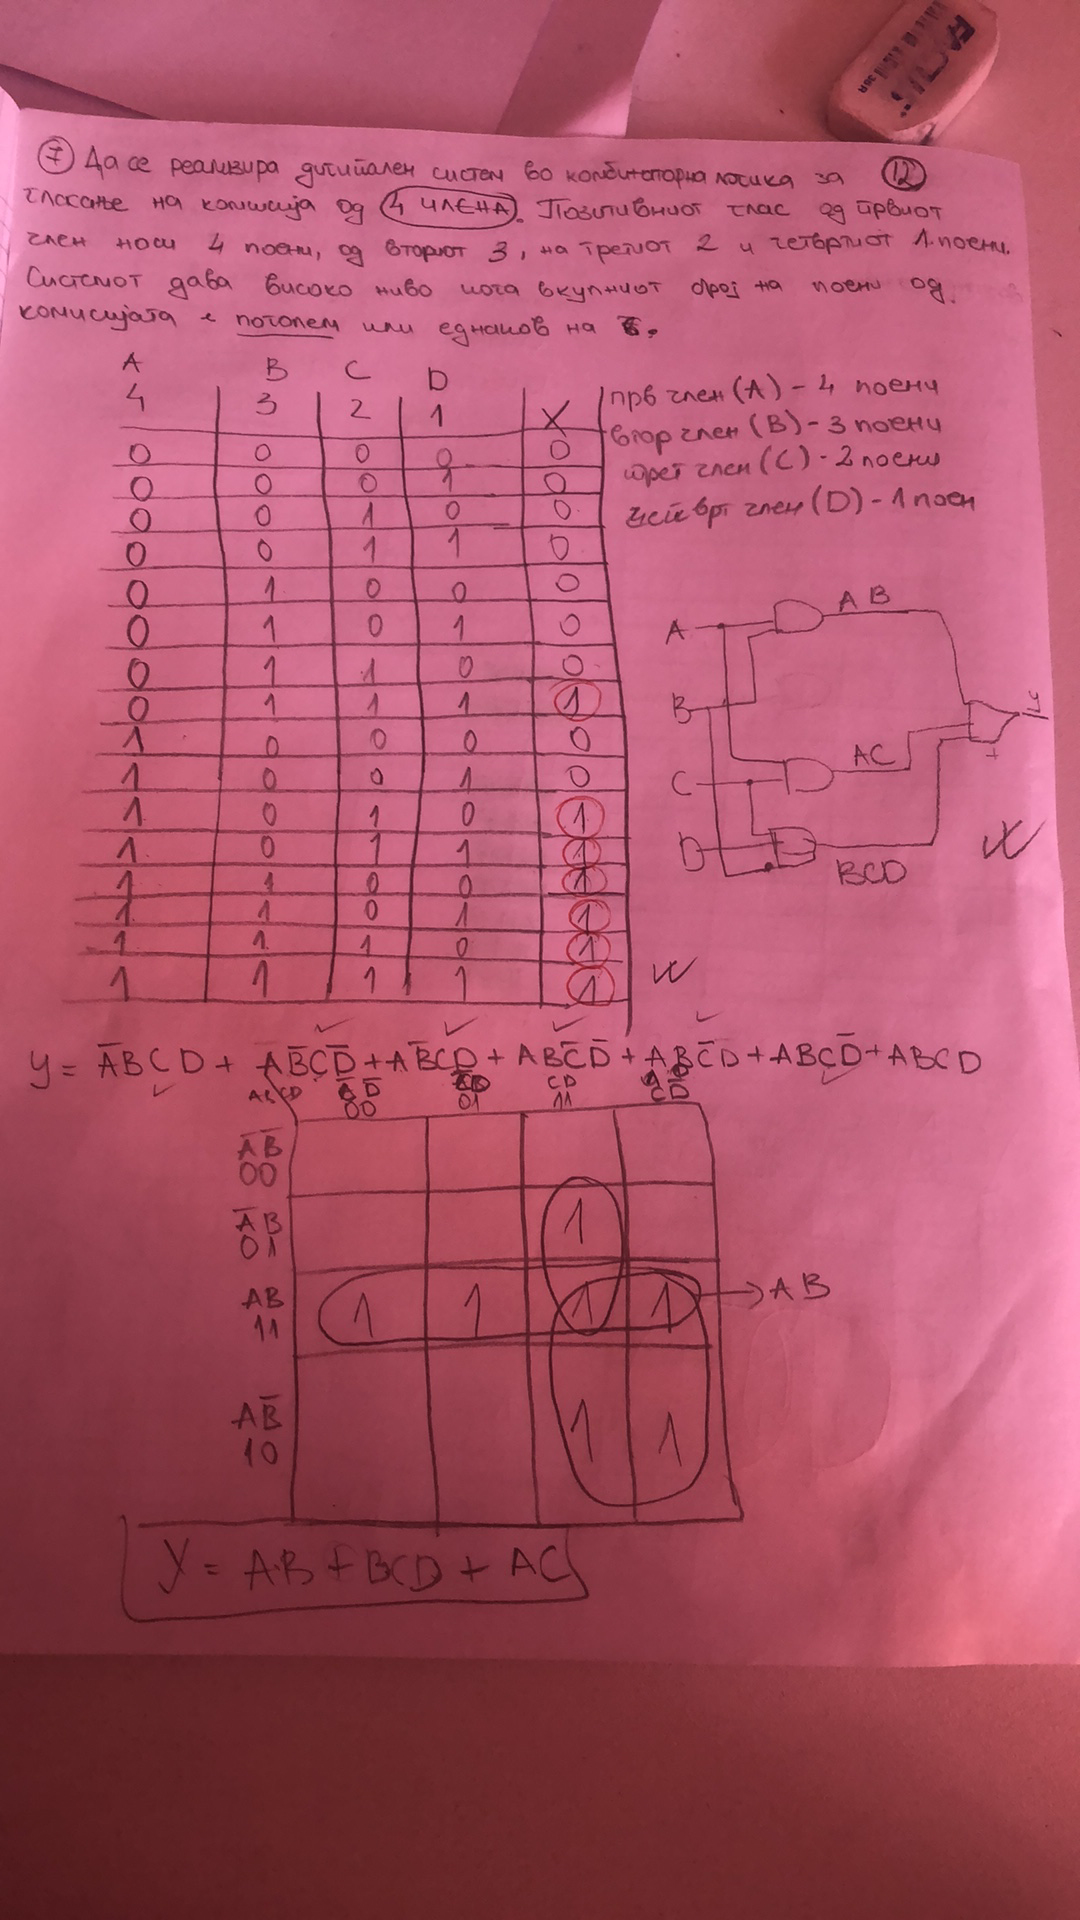 7 Да се реализира дигитален систем во комбинаторна логика за 12
гласање на комисија од 4 ЧЛЕНА. Позитивниот глас од првиот
член носи 4 поени, од вториот 3, на третиот 2 и четвртиот 1 поени.
Системот дава високо ниво кога вкупниот број на поени од
комисијата е поголем или еднаков на 6.
A B C D
4 3 2 1 X
0 0 0 0 0
0 0 0 1 0
0 0 1 0 0
0 0 1 1 0
0 1 0 0 0
0 1 0 1 0
0 1 1 0 0
0 1 1 1 1
1 0 0 0 0
1 0 0 1 0
1 0 1 0 1
1 0 1 1 1
1 1 0 0 1
1 1 0 1 1
1 1 1 0 1
1 1 1 1 1
прв член (A) - 4 поени
втор член (B) - 3 поени
трет член (C) - 2 поени
четврт член (D) - 1 поен
A AB
B
C AC
D
BCD
y = A̅BCD + AB̅CD̅ + AB̅CD + ABC̅D̅ + ABC̅D + ABCD̅ + ABCD
C̅D̅ CD CD̅
00 01 11
A̅B̅
00
A̅B 1
01
AB 1 1 1 1 → AB
11
AB̅ 1 1
10
Y = AB + BCD + AC